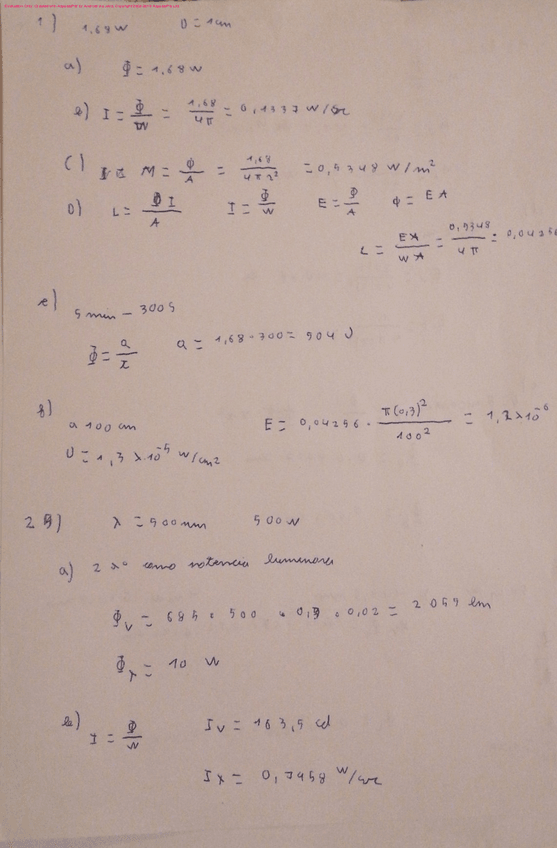 1) 1,68 W D = 1 cm
a) Φ = 1,68 W
b) I = Φ/W = 1,68/4π = 0,1337 W/sr
c) M = Φ/A = 1,68/4πr² = 0,5348 W/m²
D) L = I/A I = Φ/W E = Φ/A Φ = EA
L = EA/WA = 0,5348/4π = 0,04256
e) 5 min – 300 S
Φ = Q/t Q = 1,68 · 300 = 504 J
f) a 100 cm E = 0,04256 · π(0,5)²/100² =
W/cm²
λ = 500 nm 500 W
a) 2 % como potencia luminosa
Φv = 685 · 500 · 0,3 · 0,02 = 2055 lm
Φλ = 10 W
b) I = Φ/W Iv = 163,5 cd
Iλ = 0,7958 W/sr